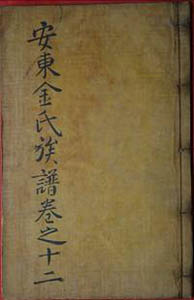 安東金氏族譜卷之十二